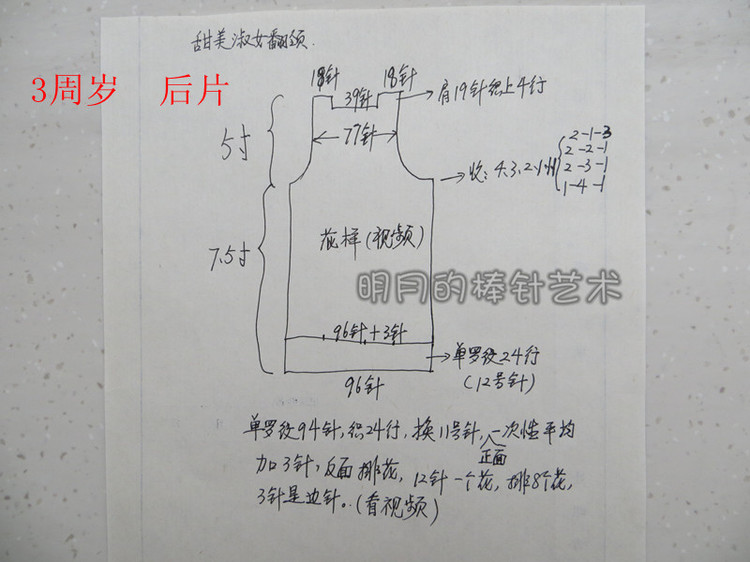 甜美淑女翻领.
3周岁 后片
18针 39针 18针
肩19针织上4行
77针
5寸
收:4.3.2.1.1.1
2-1-3
2-2-1
2-3-1
1-4-1
花样(视频)
7.5寸
明月的棒针艺术
96针+3针
单罗纹24行
(12号针)
96针
单罗纹94针,织24行,换11号针,正面一次性平均
加3针,反面排花,12针一个花,排8个花,
3针是边针。(看视频)